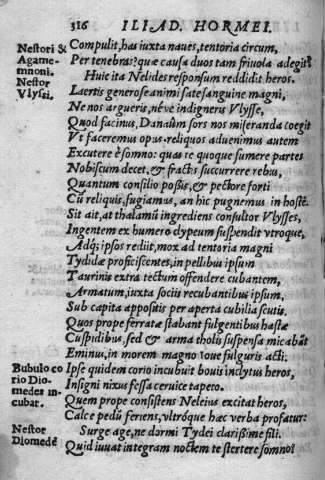 316 ILIAD. HORMEI.
Nestori &
Agame-
mnoni.
Nestor
Vlyssi.
Compulit, has iuxta naues, tentoria circum,
Per tenebras? quæ causa duos tam friuola adegit?
Huic ita Nelides responsum reddidit heros.
Laertis generose animi satesanguine magni,
Ne nos argueris, néve indigneris Vlysse,
Quod facinus, Danaûm sors nos miseranda coegit
Vt faceremus opus. reliquos aduenimus autem
Excutere è somno: quas re quoque sumere partes
Nobiscum decet, & fractis succurrere rebus,
Quantum consilio possis, & pectore forti
Cũ reliquis, fugiamus, an hic pugnemus in hostẽ.
Sit ait, at thalamũ ingrediens consultor Vlysses,
Ingentem ex humero clypeum suspendit vtroque,
Adq; ipsos rediit, mox ad tentoria magni
Tydidæ proficiscentes, in pellibus ipsum
Taurinis extra tectum offendere cubantem,
Armatum, iuxta sociis recubantibus ipsum,
Sub capita appositis per aperta cubilia scutis.
Quos prope ferratæ stabant fulgentibus hastæ
Cuspidibus, sed & arma tholis suspensa micabãt
Eminus, in morem magno Ioue fulguris acti.
Bubulo co
rio Dio-
medes in-
cubat.
Ipse quidem corio incubuit bouis inclytus heros,
Insigni nixus fessa ceruice tapeto.
Quem prope consistens Neleius excitat heros,
Calce pedũ feriens, vltróque hæc verba profatur:
Nestor
Diomedẽ
Surge age, ne dormi Tydei clarissime fili.
Quid iuuat integram noctem te stertere somno?